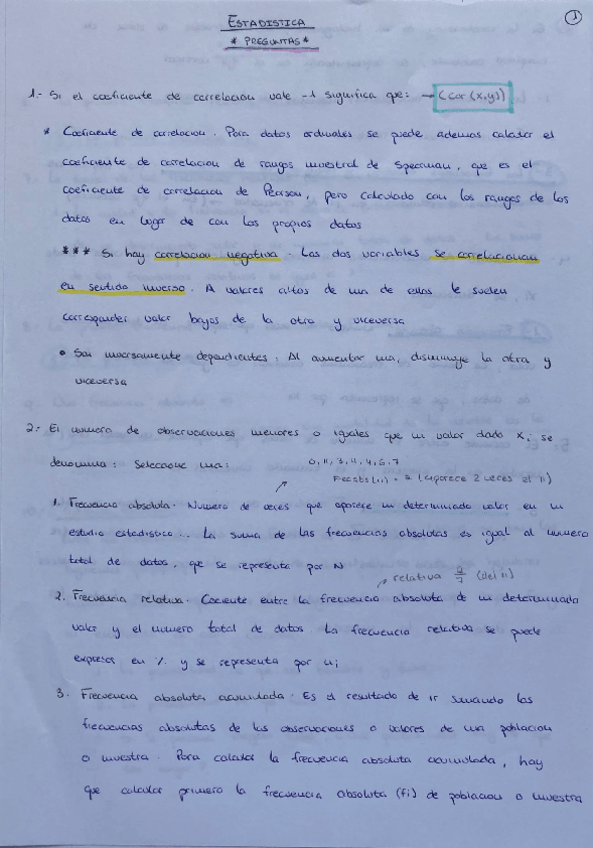 1
ESTADISTICA
* PREGUNTAS *
1.- Si el coeficiente de correlacion vale -1 significa que: → (cor(x,y))
* Coeficiente de correlacion. Para datos ordinales se puede ademas calcular el
coeficiente de correlacion de rangos muestral de Spearman, que es el
coeficiente de correlacion de Pearson, pero calculado con los rangos de los
datos en lugar de con los propios datos
*** Si hay correlacion negativa. Las dos variables se correlacionan
en sentido inverso. A valores altos de una de ellas le suelen
corresponder valor bajos de la otra y viceversa
• Son inversamente dependientes. Al aumentar una, disminuye la otra y
viceversa
2.- El numero de observaciones menores o iguales que un valor dado x, se
denomina: Seleccione una:
1. Frecuencia absoluta. Numero de veces que aparece un determinado valor en un
estudio estadistico... La suma de las frecuencias absolutas es igual al numero
total de datos, que se representa por N
relativa (del
2. Frecuencia relativa. Cociente entre la frecuencia absoluta de un determinado
valor y el numero total de datos. La frecuencia relativa se puede
expresar en % y se representa por ni
3. Frecuencia absoluta acumulada. Es el resultado de ir sumando las
frecuencias absolutas de las observaciones o valores de una poblacion
o muestra. Para calcular la frecuencia absoluta acumulada, hay
que calcular primero la frecuencia absoluta (fi) de poblacion o muestra